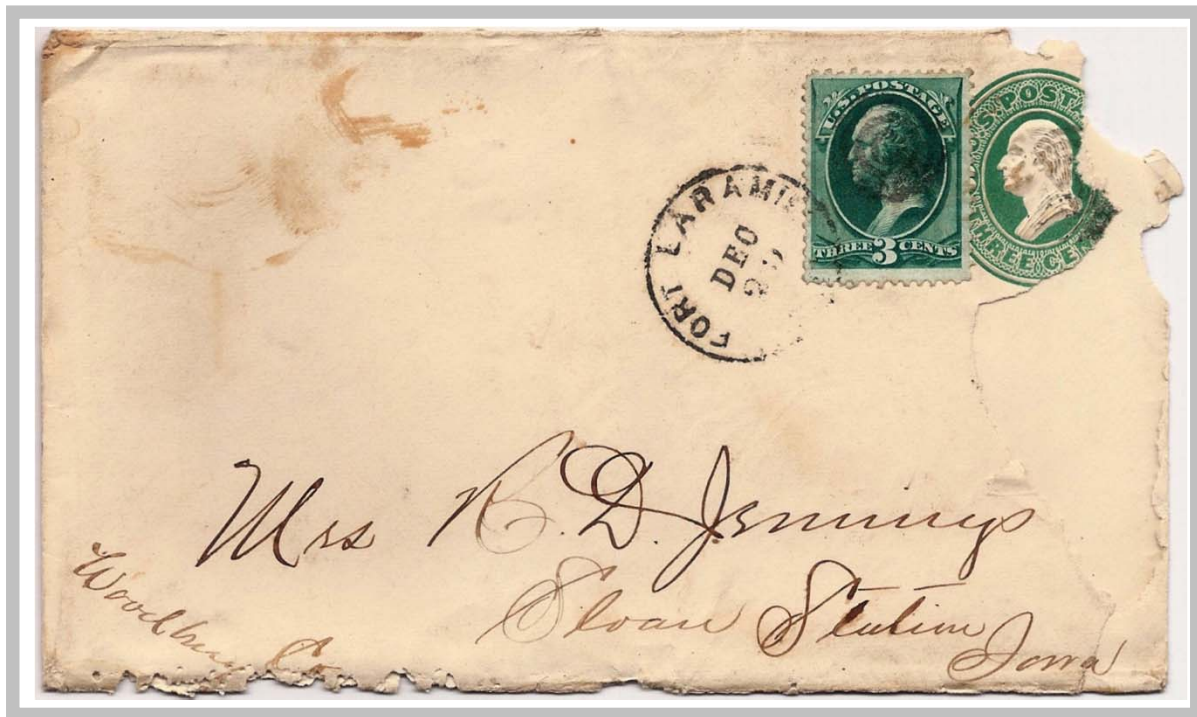 U.S. POSTAGE
THREE 3 CENTS
U.S. POST
THREE CE
FORT LARAMIE
DEC
Mrs R. D. Jennings
Sloan Station
Iowa
Woodbury Co